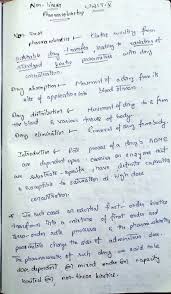 Non-linear Unit-X
Pharmacokinetics
Non linear
pharmacokinetics :- Kinetics resulting from
leading to
with drug
concentration.
Drug absorption :- Movement of a drug from its
site of application into blood stream
Drug distribution :- Movement of drug to & from
blood & various tissue of body.
Drug elimination :- Removal of drug from body.
Introduction :- process of a drug's ADME
are dependent upon carriers or enzymes that
are substrate-specific, have definite capacities
& susceptible to saturation at high dose
concentration.
In such cases an essential first-order kinetics
transform into a mixture of first order and
zero-order rate processes & the pharmacokinetic
parameters change the dose of administered dose.
The pharmacokinetics of such drug are said to be
dose dependent or mixed order or capacity
limited or non linear kinetics.